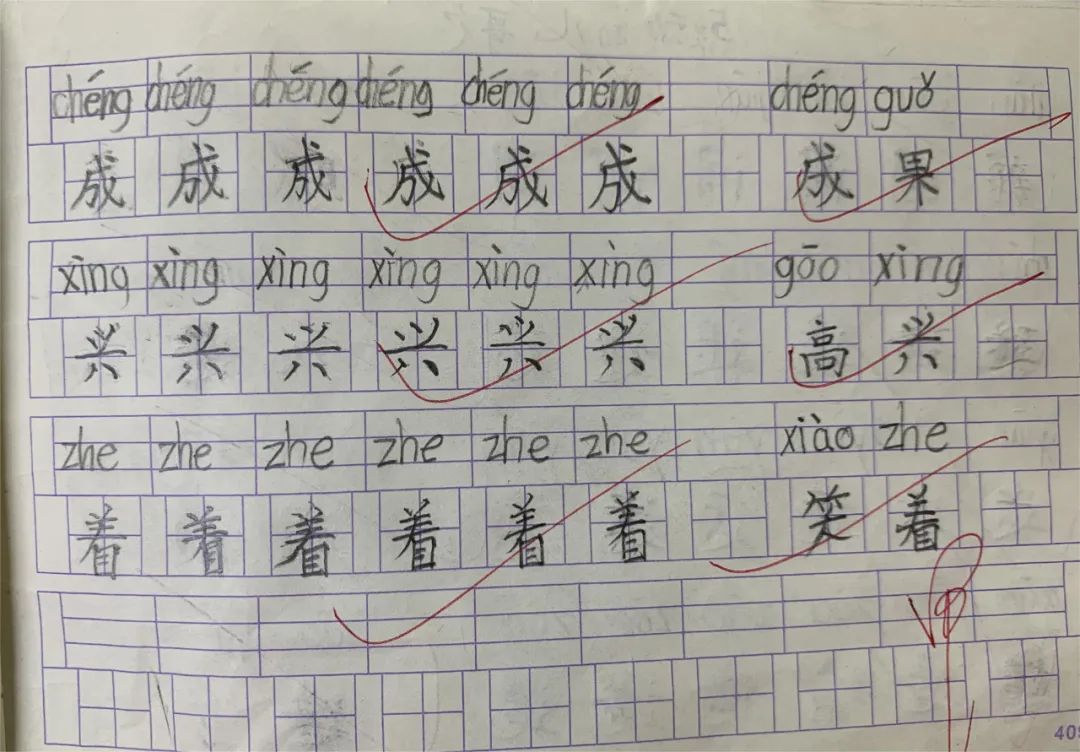 chéng chéng chéng chéng chéng chéng chéng guǒ
成 成 成 成 成 成 成 果
xìng xìng xìng xìng xìng xìng gāo xìng
兴 兴 兴 兴 兴 兴 高 兴
zhe zhe zhe zhe zhe zhe xiào zhe
着 着 着 着 着 着 笑 着